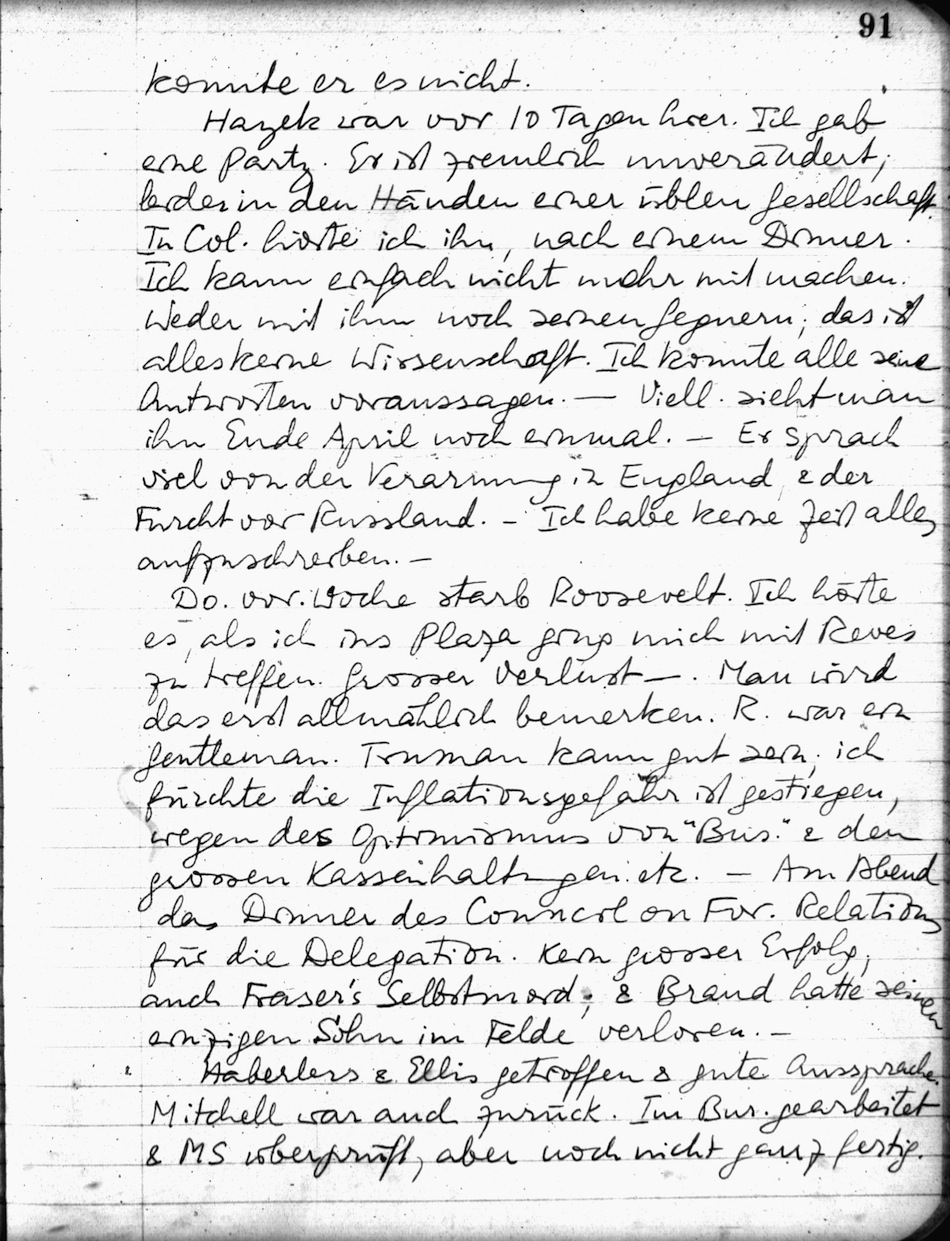 91
konnte er es nicht.
Hayek war vor 10 Tagen hier. Ich gab
eine Party. Er ist ziemlich unverändert,
leider in den Händen einer üblen Gesellschaft
In Col. hörte ich ihn, nach einem Dinner.
Ich kann einfach nicht mehr mit machen.
Weder mit ihm noch seinen Gegnern; das ist
alles keine Wissenschaft. Ich konnte alle seine
Antworten voraussagen. — Viell. sieht man
ihn Ende April noch einmal. — Er sprach
viel von der Verarmung in England & der
Furcht vor Russland. – Ich habe keine Zeit alles
aufzuschreiben. —
Do. vor. Woche starb Roosevelt. Ich hörte
es, als ich ins Plaza ging mich mit Reves
zu treffen. Grosser Verlust —. Man wird
das erst allmählich bemerken. R. war ein
Gentleman. Truman kann gut sein; ich
fürchte die Inflationsgefahr ist gestiegen,
wegen des Optimismus von "Bus." & den
grossen Kassenhaltungen etc. — Am Abend
das Dinner des Council on For. Relations
für die Delegation. Kein grosser Erfolg,
auch Fraser's Selbstmord; & Brand hatte seinen
einzigen Sohn im Felde verloren. —
Haberlers & Ellis getroffen & gute Aussprache.
Mitchell war auch zurück. Im Bur. gearbeitet
& MS überprüft, aber noch nicht ganz fertig.